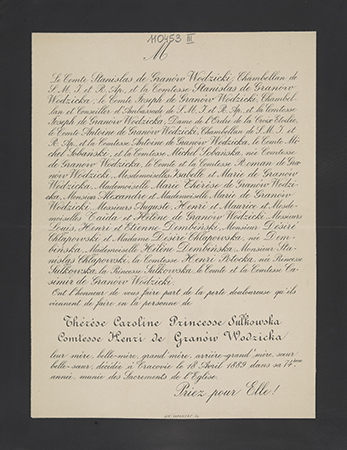 110453 III
M
Le Comte Stanislas de Granów Wodzicki, Chambellan de
S. M. I. et R. Ap., et la Comtesse Stanislas de Granów
Wodzicka, le Comte Joseph de Granów Wodzicki, Chambel-
lan et Conseiller d'Ambassade de S. M. I. et R. Ap., et la Comtesse
Joseph de Granów Wodzicka, Dame de l'Ordre de la Croix Etoilée,
le Comte Antoine de Granów Wodzicki, Chambellan de S. M. I. et
R. Ap., et la Comtesse Antoine de Granów Wodzicka, le Comte Mi-
chel Sobański, et la Comtesse Michel Sobańska, née Comtesse
de Granów Wodzicka, le Comte et la Comtesse Roman de Gra-
nów Wodzicki, Mesdemoiselles Isabelle et Marie de Granów
Wodzicka, Mademoiselle Marie Thérèse de Granów Wodzi-
cka, Monsieur Alexandre et Mademoiselle Marie de Granów
Wodzicki, Messieurs Auguste, Henri et Maurice et Mesde-
moiselles Taida et Hélène de Granów Wodzicki, Messieurs
Louis, Henri et Etienne Dembiński, Monsieur Désiré
Chłapowski et Madame Désiré Chłapowska, née Dem-
bińska, Mademoiselle Hélène Dembińska, Monsieur Sta-
nislas Chłapowski, la Comtesse Henri Potocka, née Princesse
Sułkowska, la Princesse Sułkowska, le Comte et la Comtesse Ca-
simir de Granów Wodzicki.
Ont l'honneur de vous faire part de la perte douloureuse qu'ils
viennent de faire en la personne de
Thérèse Caroline Princesse Sułkowska
Comtesse Henri de Granów Wodzicka
leur mère, belle-mère, grand'mère, arrière-grand'mère, sœur
belle-sœur, décédée à Cracovie le 18 Avril 1889 dans sa
année, munie des Sacrements de l'Eglise.
Priez pour Elle!